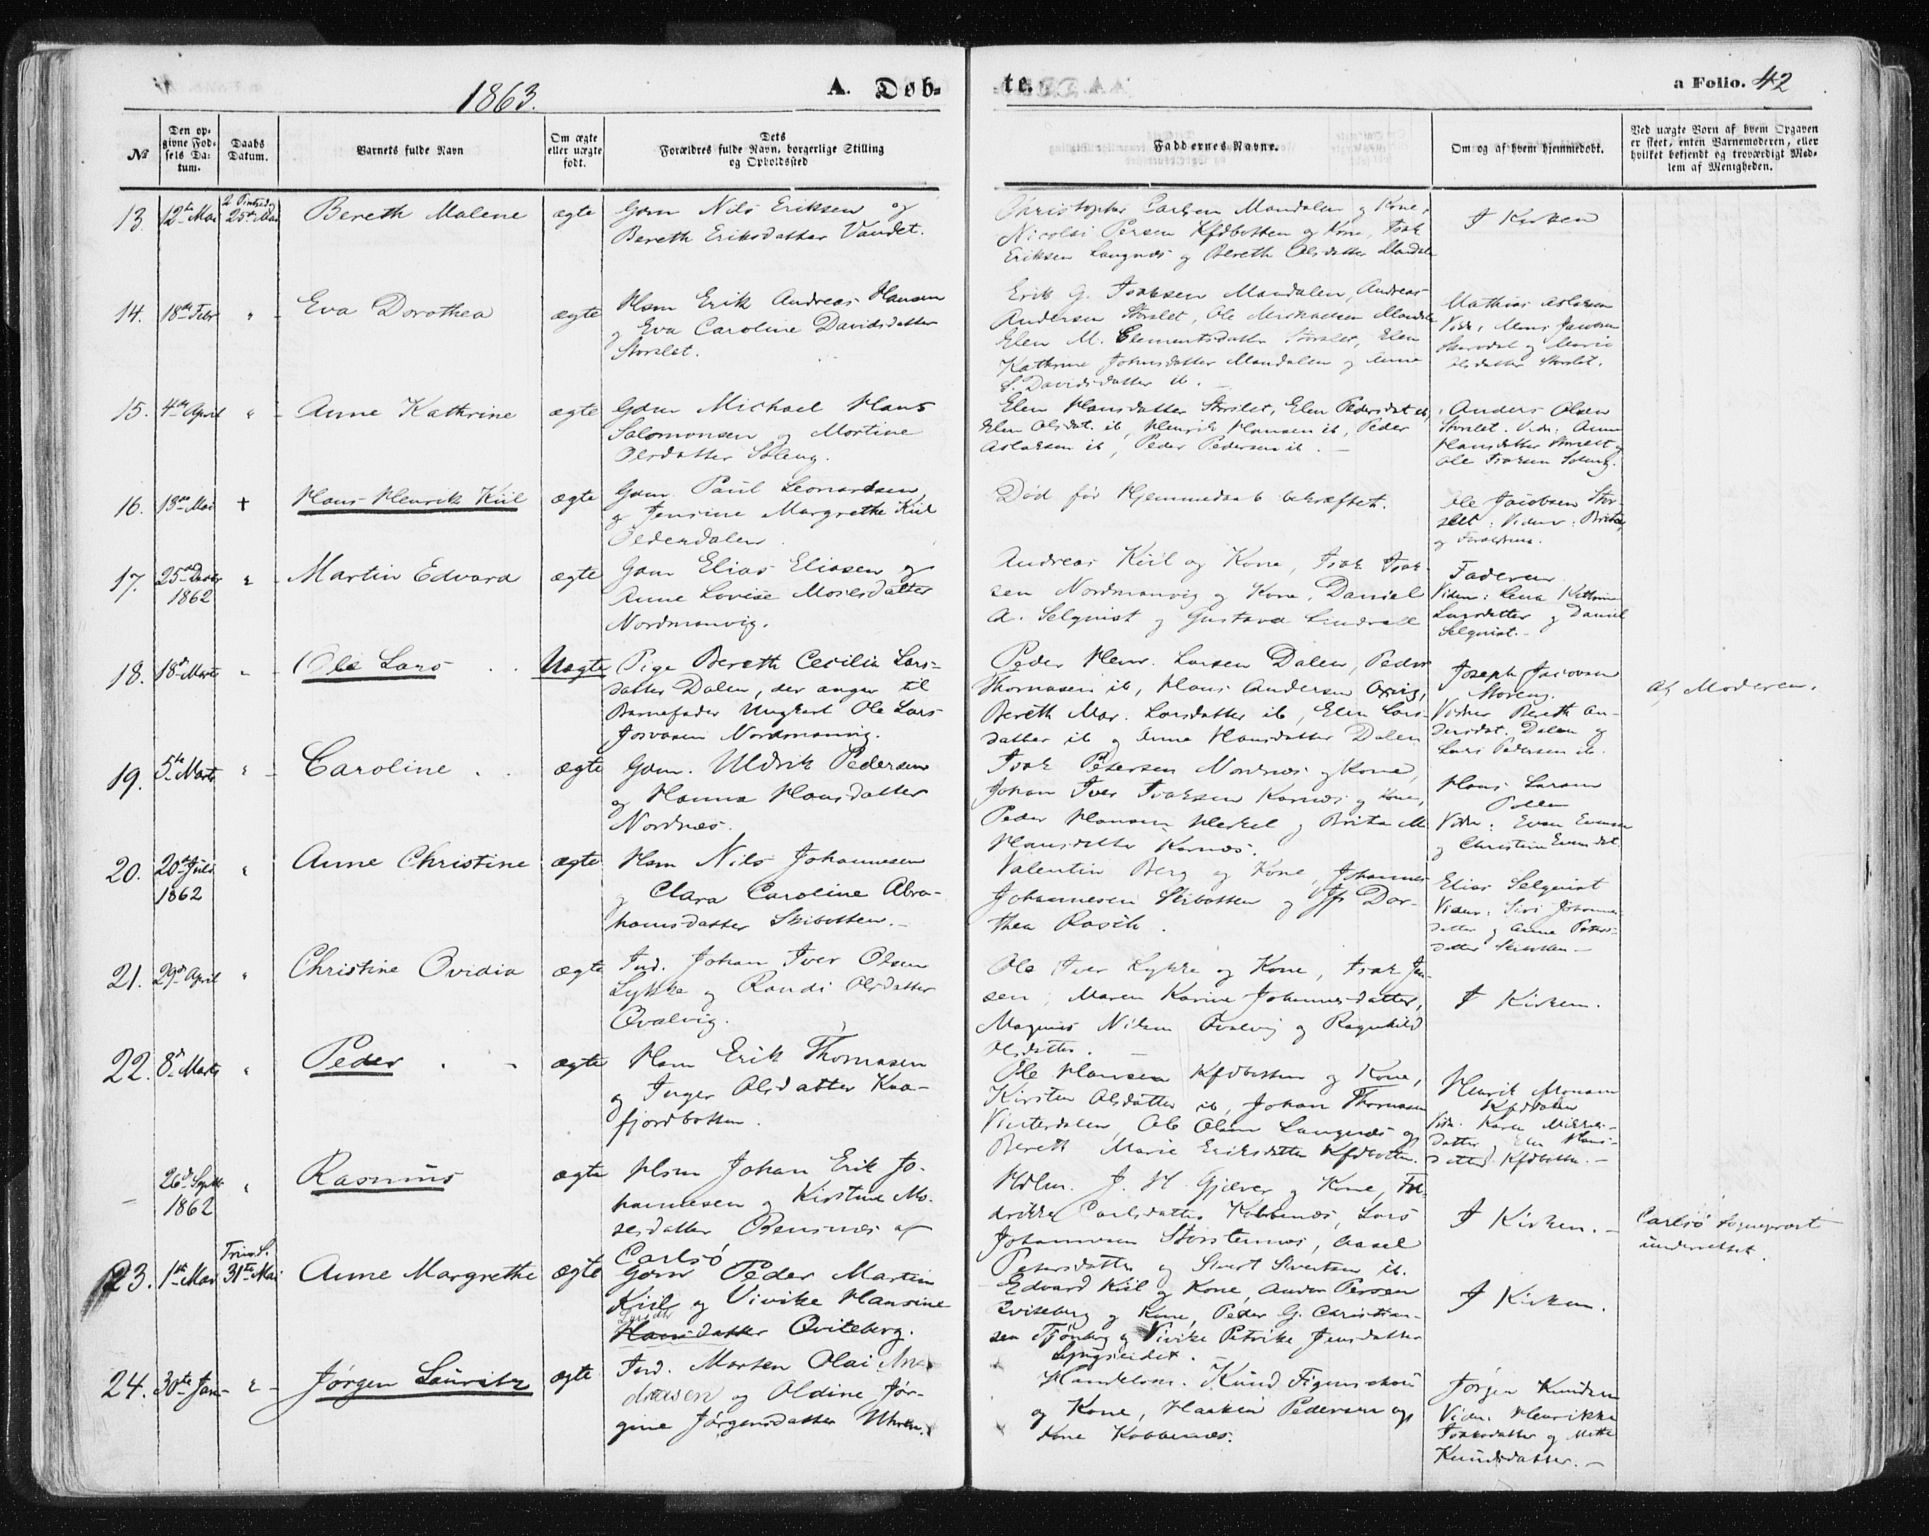 1863.
A. Døb-
te.
a Folio. 42
№
Den op-
givne Fød-
sels Da-
tum.
Daabs
Datum.
Barnets fulde Navn
Om ægte
eller uægte
født.
Dets
Forældres fulde Navn, borgerlige Stilling
og Opholdssted
Faddernes Navne.
Om og af hvem hjemmedøbt.
Ved uægte Børn af hvem Opgaven
er skeet, enten Barnemoderen, eller
hvilket bekjendt og troværdigt Med-
lem af Menigheden.
13. 12te Mai
25de Mai
Bereth Malene
ægte
Gdm Nils Eriksen og
Bereth Eriksdatter Vandet.
Christopher Carlsen Mandalen og Kone,
Nicolai Persen Kfdbotten og Kone, Isak
Eriksen Langnæs og Bereth Olsdatter Mandalen
I Kirken
14. 18de Febr "
Eva Dorothea
ægte
Hsm Erik Andreas Hansen
og Eva Caroline Davidsdatter
Storslet.
Erik G. Isaksen Mandalen, Andreas
Andersen Storslet, Ole Mikkelsen Mandalen
Elen M. Clementsdatter Storslet, Elen
Kathrine Johnsdatter Mandalen og Anne
S. Davidsdatter ib.
Mathias Aslaksen
Vidn: Mons Jacobsen
og Marie
Olsdatter Storslet.
15. 4de April "
Anne Kathrine
ægte
Gdm Michael Hans
Salomonsen og Mortine
Olsdatter Soleng.
Elen Hansdatter Storslet, Elen Pedersdat ib,
Elen Olsdat. ib, Henrik Hansen ib, Peder
Aslaksen ib, Peder Pedersen ib.
Anders Olsen
Storslet. Vidn: Anne
Hansdatter Storslet og
Ole Isaksen Soleng.
16. 13de Mai †
Hans Henrik Kiil
ægte
Gdm. Paul Leonartsen
og Jensine Margrethe Kiil
Olderdalen
Død før Hjemmedaab bekræftet.
Ole Jacobsen Stor-
slet: Vidner: Brita
og Forældrene.
17. 25de Decbr
1862
"
Martin Edvard
ægte
Gdm Elias Eliasen og
Anne Lovise Mosesdatter
Nordmanvig.
Andreas Kiil og Kone, Isak Isak-
sen Nordmanvig og Kone, Daniel
A. Selqvist og Gustava Lindvall
Faderen
Vidn: Lena Kathrine
Larsdatter og Daniel
Selqvist.
18. 18de Marts "
Ole Lars
Uægte
Pige Bereth Cecilia Lars-
datter Dalen, der angav til
Barnefader Ungkarl Ole Lars
Josvasen Nordmanvig.
Peder Henr. Larsen Dalen, Peder
Thomasen ib, Hans Andersen Oxvig,
Bereth Mar. Larsdatter ib, Elen Lars-
datter ib og Anne Hansdatter Dalen
Joseph Jacobsen
Storeng.
Vidner Bereth An-
dersdat. Dalen og
Lars Pedersen ib.
af Moderen.
19. 5te Marts "
Caroline
ægte
Gdm. Uldrik Pedersen
og Hanna Hansdatter
Nordnæs.
Isak Petersen Nordnæs og Kone,
Johan Iver Isaksen Kornæs og Kone,
Peder Hansen og Brita M
Hansdatter Kornæs.
Hans Larsen
Vidn: Even Evensen
og Christine Evensdat
20. 20de Juli
1862
"
Anne Christine
ægte
Hsm Nils Johannesen
og Clara Caroline Abra-
hamsdatter Skibotten.
Valentin Berg og Kone, Johannes
Johannesen Skibotten og Jfr Dor-
thea Rasch.
Elias Selqvist
Vidn: Siri Johannes-
datter og Anne Peters-
datter Skibotten
21. 29de April "
Christine Ovidia
ægte
Ind. Johan Iver Olsen
Lykke og Randi Olsdatter
Qvalvig.
Ole Iver Lykke og Kone, Isak Jen-
sen, Maren Karine Johannesdatter,
Magnus Nilsen Qvalvig og Ragnhild
Olsdatter.
I Kirken.
22. 8de Marts "
Peder
ægte
Hsm Erik Thomasen
og Inger Olsdatter Kaa-
fjordbotten.
Ole Hansen Kfdbotten og Kone,
Kirsten Olsdatter ib, Johan Thomasen
Vinterdalen, Ole Olsen Langnæs og
Bereth Marie Eriksdatter Kfdbotten.
Henrik Monsen
Kfdbotten
Vidn. Karen Mikkels-
datter og Elen Hans-
datter Kfdbotten.
26de Septbr
1862
"
Rasmus
ægte
Hsm Johan Erik Jo-
hannesen og Kirstine Mo-
sesdatter Bensnes af
Carlsö
Hdlm. J. H. Gjæver og Kone, Fre-
drikke Carlsdatter Kobbenæs, Lars
Johannesen Storstennæs, Aasel
Petersdatter og Sivert Sivertsen ib.
I Kirken.
Carlsö Sogneprest
underrettet.
23. 1ste Mai
Trinit. S.
31te Mai
Anne Margrethe
ægte
Gdm Peder Martin
Kiil og Vivike Hansine
Hansdatter Qviteberg.
Edvard Kiil og Kone, Anders Persen
Qviteberg og Kone, Peder G. Christian-
sen og Vivike Petrike Jensdatter
Lyngseidet.
I Kirken.
24. 30te Jan "
Jørgen Lauritz
ægte
Ind. Morten Olai An-
dreasen og Oldine Jør-
gine Jørgensdatter Uhren.
Handelsm. Knud Figenschou
og Kone, Haakon Pedersen og
Kone Kobbenæs.
Jørgen Knudsen
Vidn. Henrikke
Isaksdatter og Mette
Knudsdatter.